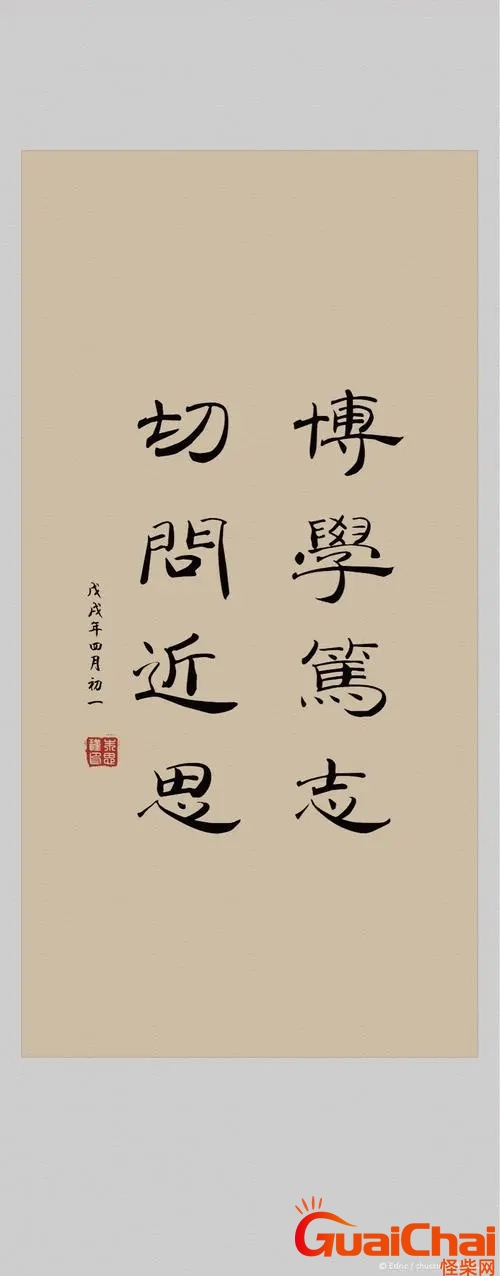 博學篤志
切問近思
戊戌年四月初一
GuaiChai
怪柴网